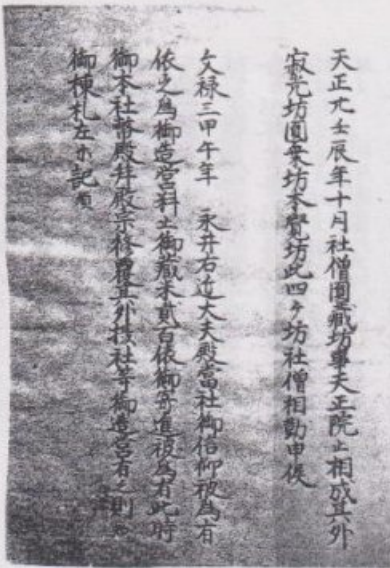 天正廿壬辰年十月社僧圓蔵坊事天正院与相成其外
寂光坊圓乗坊本覚坊此四ヶ坊社僧相勤申候
文禄三甲午年 永井右近大夫殿當社御信仰被為有
依之為御造営料土御蔵米貳百俵御寄進被為有此時
御本社幣殿拝殿宗修覆其外末社等御造営有之則
御棟札左ニ記有